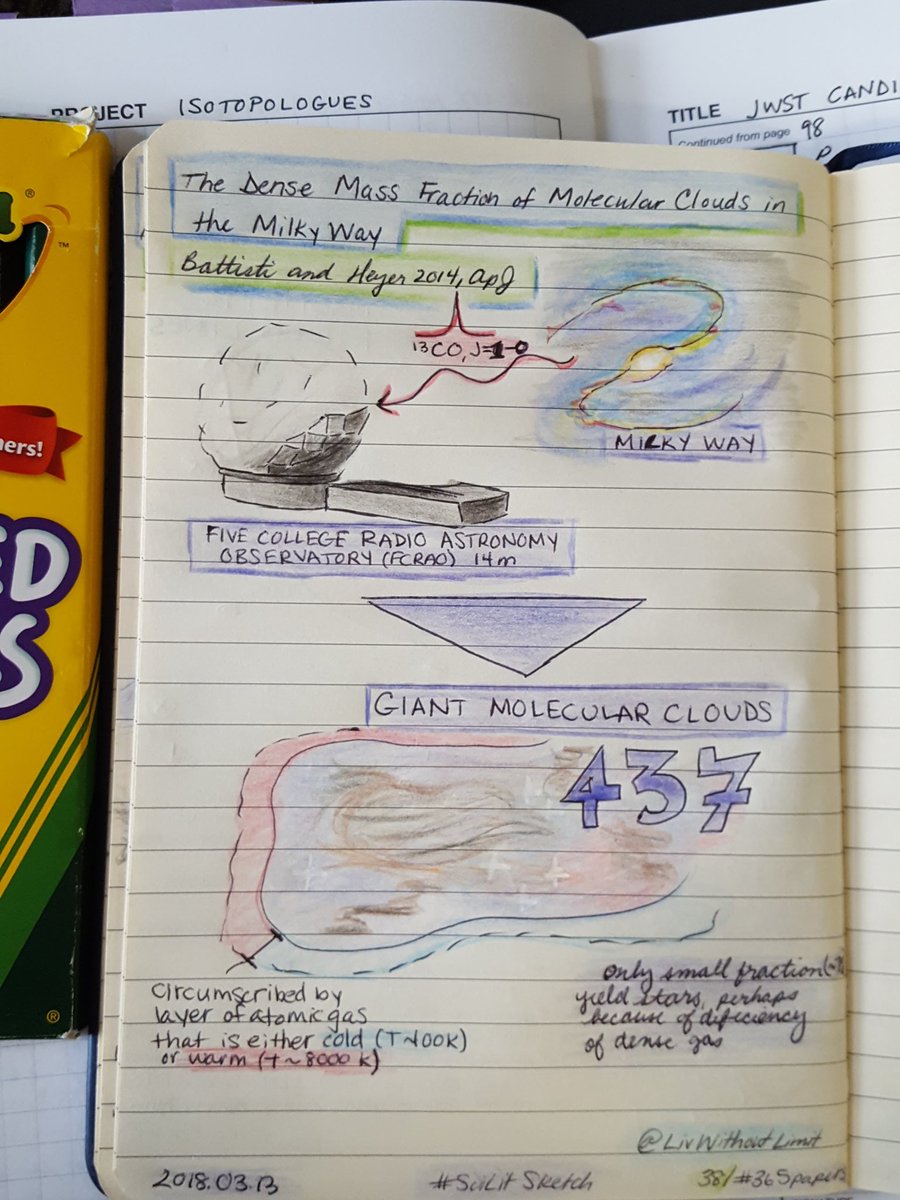 PROJECT ISOTOPOLOGUES
TITLE JWST CANDI
Continued from page 98
The Dense Mass Fraction of Molecular Clouds in
the Milky Way
Battisti and Heyer 2014, ApJ
13CO, J=1-0
MILKY WAY
FIVE COLLEGE RADIO ASTRONOMY
OBSERVATORY (FCRAO) 14m
GIANT MOLECULAR CLOUDS
437
Circumscribed by
layer of atomic gas
that is either cold (T~100K)
or warm (T~8000 K)
only small fraction
yield stars, perhaps
because of dificiency
of dense gas
@LivWithoutLimit
2018.03.13
#SciLit Sketch
38/#365papers
ners!
ED
S
®
™
®